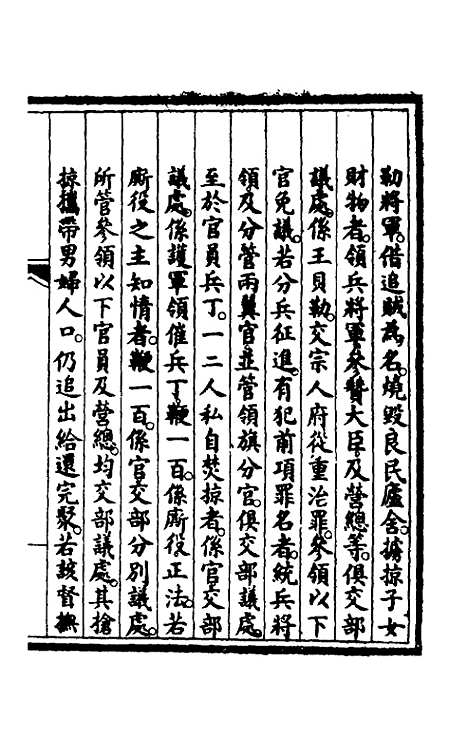 勒將軍。借追賊為名。燒毀良民廬舍。擄掠子女
財物者。領兵將軍。參贊大臣。及營總等。俱交部
議處。係王貝勒。交宗人府從重治罪。參領以下
官免議。若分兵征進。有犯前項罪名者。統兵將
領及分管兩翼官。並管領旗分官。俱交部議處。
至於官員兵丁。一二人私自焚掠者。係官交部
議處。係護軍領催兵丁。鞭一百。係廝役正法。若
廝役之主知情者。鞭一百。係官交部分別議處。
所管參領以下官員及營總。均交部議處。其搶
掠攜帶男婦人口。仍追出給還完聚。若該督撫